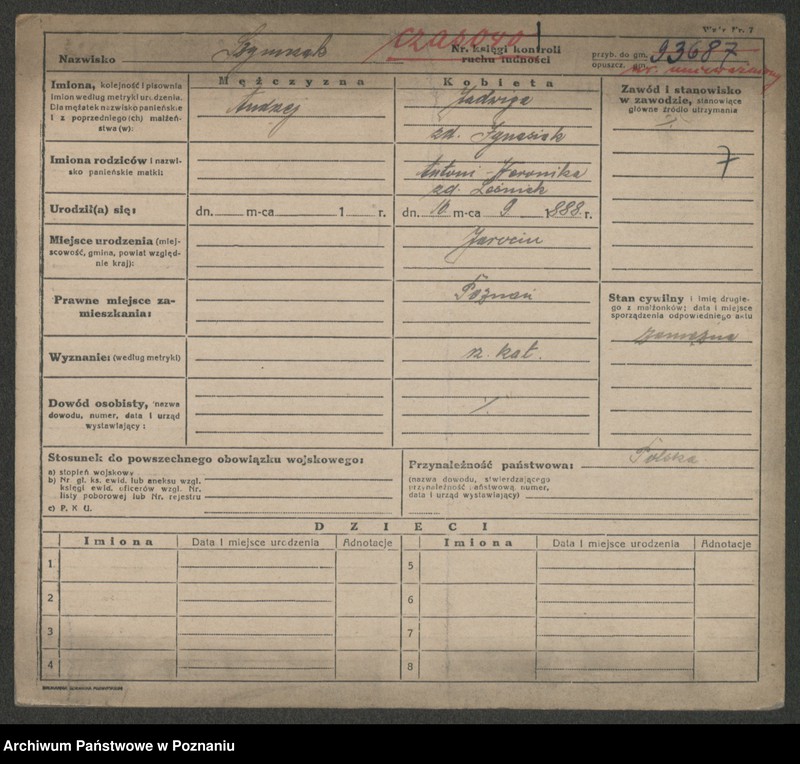 Wzór Nr. 7
Nazwisko Szymczak
czasowo
Nr. księgi kontroli
ruchu ludności
przyb. do gm. 93687
opuszcz. gm.
nr. unieważniony
Imiona, kolejność i pisownia
imion według metryki urodzenia.
Dla mężatek nazwisko panieńskie
i z poprzedniego(ich) małżeń-
stwa(w):
Mężczyzna
Andrzej
Kobieta
Jadwiga
zd. Ignasiak
Zawód i stanowisko
w zawodzie, stanowiące
główne źródło utrzymania
7
Imiona rodziców i nazwi-
sko panieńskie matki:
Antoni - Weronika
zd. Leśniak
Urodził(a) się:
dn. m-ca 1 r.
dn. 10 m-ca 9 1888 r.
Miejsce urodzenia (miej-
scowość, gmina, powiat względ-
nie kraj):
Jarocin
Prawne miejsce za-
mieszkania:
Poznań
Stan cywilny i imię drugie-
go z małżonków; data i miejsce
sporządzenia odpowiedniego aktu
zamężna
Wyznanie: (według metryki)
rz. kat.
Dowód osobisty, nazwa
dowodu, numer, data i urząd
wystawiający:
Stosunek do powszechnego obowiązku wojskowego:
a) stopień wojskowy
b) Nr. gł. ks. ewid. lub aneksu wzgl.
księgi ewid. oficerów wzgl. Nr.
listy poborowej lub Nr. rejestru
c) P. K. U.
Przynależność państwowa: Polska
(nazwa dowodu, stwierdzającego
przynależność państwową, numer,
data i urząd wystawiający)
DZIECI
Imiona Data i miejsce urodzenia Adnotacje Imiona Data i miejsce urodzenia Adnotacje
1 5
2 6
3 7
4 8
Archiwum Państwowe w Poznaniu